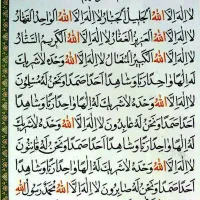 لَا اِلٰهَ اِلَّا اللهُ الْجَلِيْلُ الْجَبَّارُ لَا اِلٰهَ اِلَّا اللهُ الْوَاحِدُ الْقَهَّارُ
لَا اِلٰهَ اِلَّا اللهُ الْعَزِيْزُ الْغَفَّارُ لَا اِلٰهَ اِلَّا اللهُ الْكَرِيْمُ السَّتَّارُ
لَا اِلٰهَ اِلَّا اللهُ الْكَبِيْرُ الْمُتَعَالُ لَا اِلٰهَ اِلَّا اللهُ وَحْدَهُ لَا شَرِيْكَ
لَهُ اِلٰهًا وَاحِدًا رَبًّا وَشَاهِدًا اَحَدًا صَمَدًا وَنَحْنُ لَهُ مُسْلِمُوْنَ
لَا اِلٰهَ اِلَّا اللهُ وَحْدَهُ لَا شَرِيْكَ لَهُ اِلٰهًا وَاحِدًا رَبًّا وَشَاهِدًا
اَحَدًا صَمَدًا وَنَحْنُ لَهُ عَابِدُوْنَ لَا اِلٰهَ اِلَّا اللهُ وَحْدَهُ لَا شَرِيْكَ
لَهُ اِلٰهًا وَاحِدًا رَبًّا وَشَاهِدًا اَحَدًا صَمَدًا وَنَحْنُ لَهُ قَانِتُوْنَ
لَا اِلٰهَ اِلَّا اللهُ وَحْدَهُ لَا شَرِيْكَ لَهُ اِلٰهًا وَاحِدًا رَبًّا وَشَاهِدًا
اَحَدًا صَمَدًا وَنَحْنُ لَهُ صَابِرُوْنَ لَا اِلٰهَ اِلَّا اللهُ مُحَمَّدٌ رَسُوْلُ اللهِ